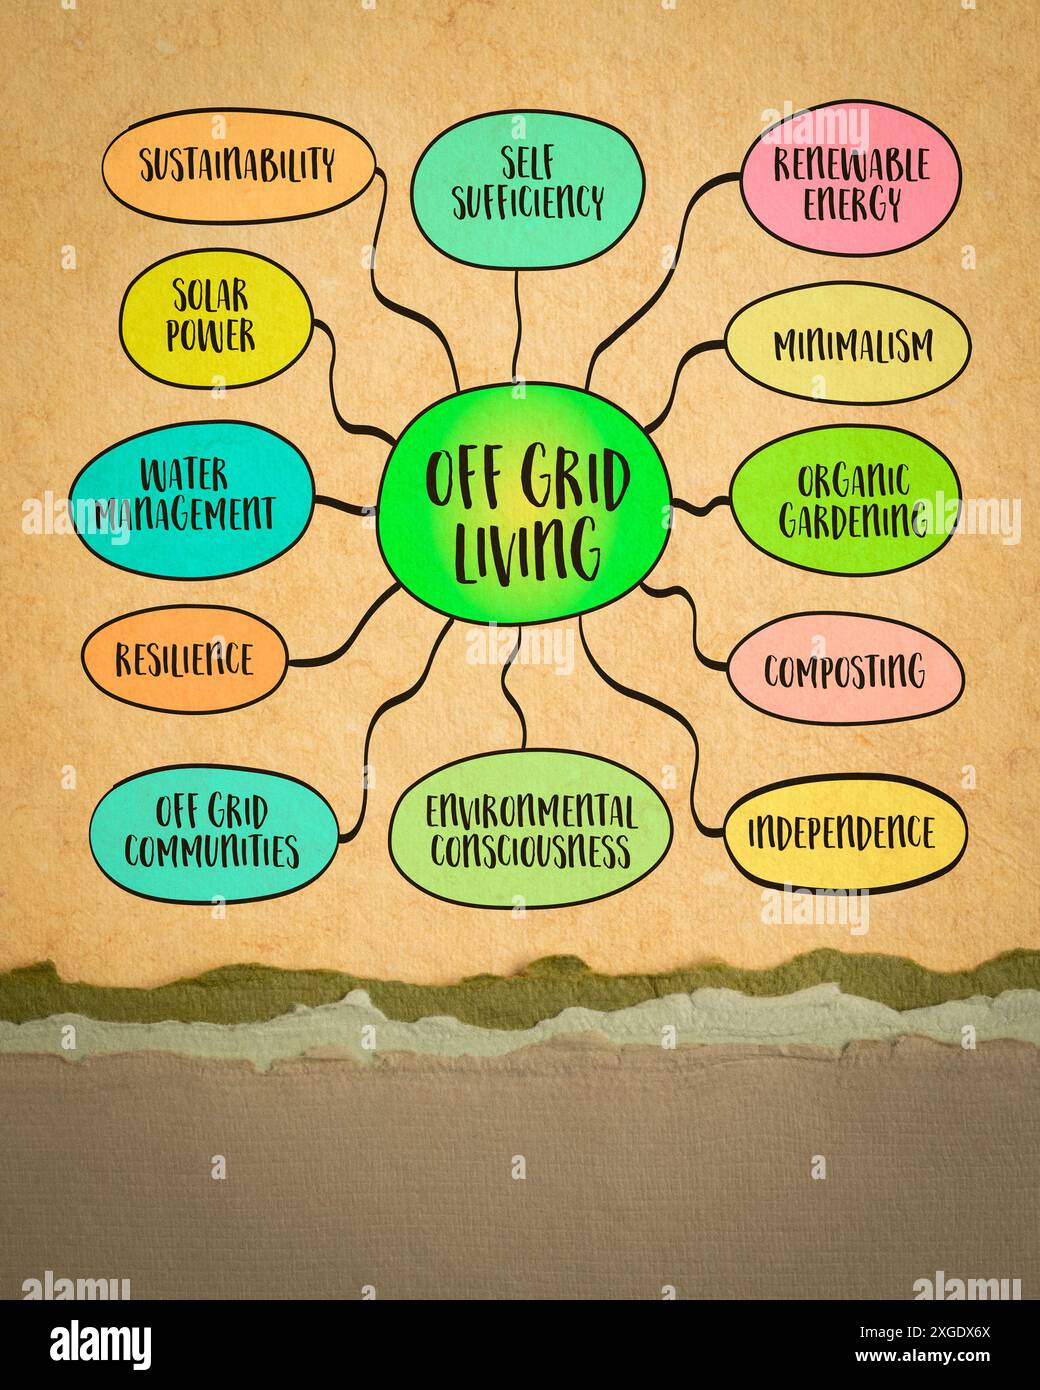 SUSTAINABILITY
SELF
SUFFICIENCY
RENEWABLE
ENERGY
SOLAR
POWER
MINIMALISM
WATER
MANAGEMENT
OFF GRID
LIVING
ORGANIC
GARDENING
RESILIENCE
COMPOSTING
OFF GRID
COMMUNITIES
ENVIRONMENTAL
CONSCIOUSNESS
INDEPENDENCE
alamy
Image ID: 2XGDX6X
www.alamy.com